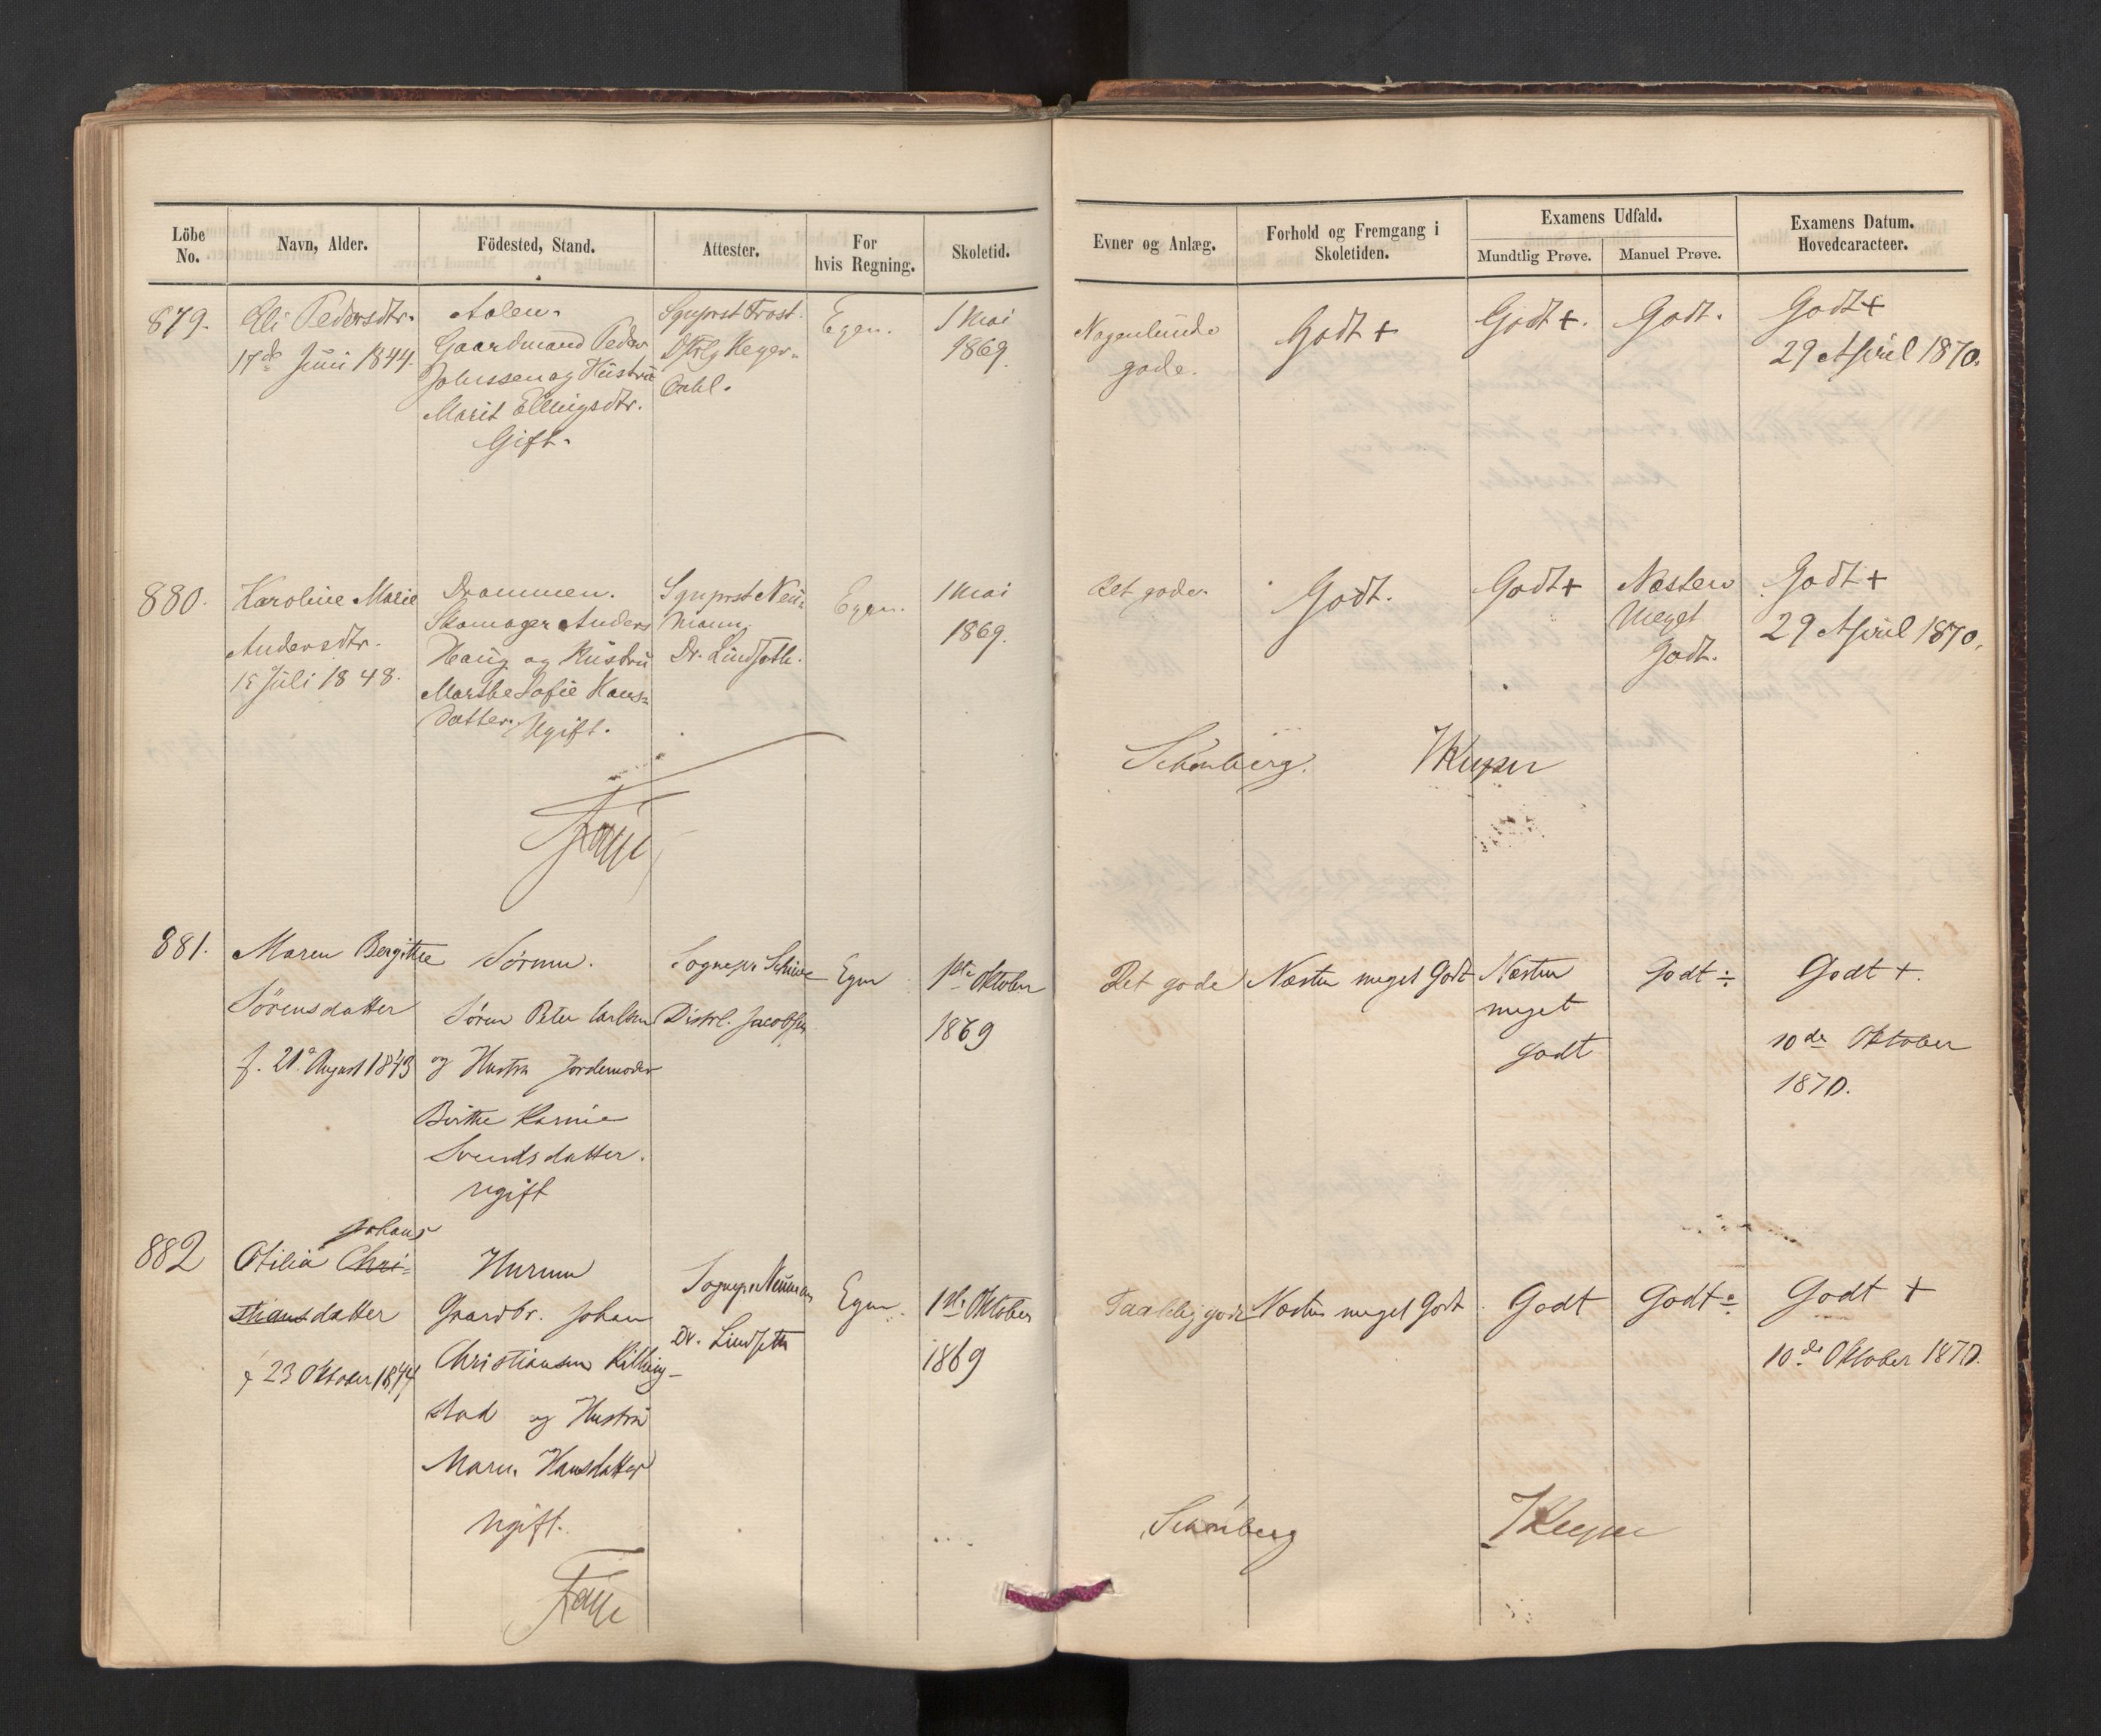 Löbe No.
Navn, Alder.
Födested, Stand.
Attester.
For hvis Regning.
Skoletid.
Evner og Anlæg.
Forhold og Fremgang i Skoletiden.
Examens Udfald.
Mundtlig Prøve.
Manuel Prøve.
Examens Datum. Hovedcaracteer.
879.
Eli Pedersdtr.
17de Juni 1844.
Aalen.
Gaardmand Peder
Johnssen og Hustru
Marit Ellingsdtr.
Gift.
Sgnprst Frost.
Dahl.
Egen.
1 Mai
1869.
Nogenlunde
gode.
Godt +
Godt +.
Godt.
Godt +
29 April 1870.
880.
Karoline Marie
Andersdtr.
15 Juli 1848.
Drammen.
Skomager Anders
Haug og Hustru
Marthe Sofie Hans-
datter. Ugift.
Sgnprst Neu-
mann.
Dr. Lindseth.
Egen.
1 Mai
1869.
Ret gode.
Godt.
Godt +
Næsten
Meget
Godt.
Godt +
29 April 1870.
Faye
Schønberg.
Keyser
881.
Maren Bergitte
Sörensdatter
f. 21de August 1843
Sørum.
Sören Peter Carlsen
og Hustru Jordemoder
Birthe Karine
Svendsdatter.
Ugift
Sognepr Schive
Distrl. Jacobsen
Egen
1ste Oktober
1869
Ret gode
Næsten meget Godt
Næsten
meget
godt
Godt ÷
Godt +.
10de Oktober
1870.
882
Johans
Otilia Chri-
stiansdatter
f 23 Oktober 1844
Hurum
Gaardbr. Johan
Christiansen Killing-
stad og Hustru
Maren Hansdatter
Ugift.
Sognepr Neumann
Dr. Lindseth
Egen.
1ste Oktober
1869
Taalelig gode
Næsten meget Godt
Godt
Godt ÷
Godt +
10de Oktober 1870.
Faye
Schønberg
Keyser